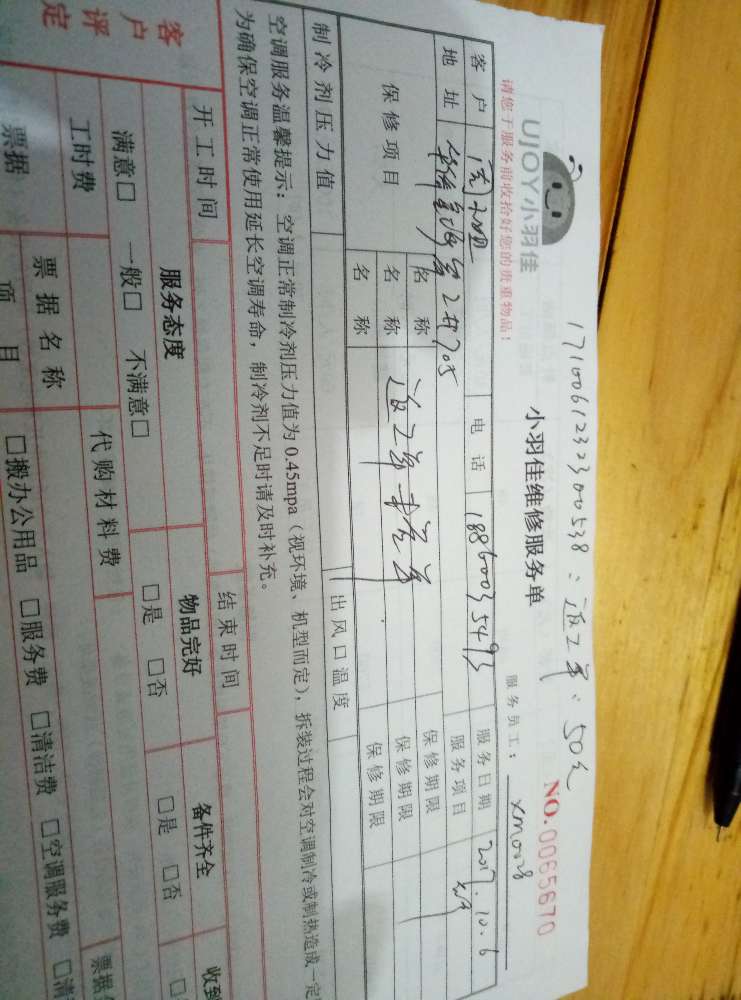 1710061232300538：返工单：50元
UJOY小羽佳
小羽佳维修服务单
NO.0065670
请您于服务前收拾好您的贵重物品！
服务员工：xm0028
客户 电话 18860035493 服务日期 2017.10.6
地址 2#705 服务项目
保修项目 名称 保修期限
名称 返工单 保修期限
名称 保修期限
制冷剂压力值 出风口温度
空调服务温馨提示：空调正常制冷剂压力值为0.45mpa（视环境、机型而定），拆装过程会对空调制冷或制热造成一定
为确保空调正常使用延长空调寿命，制冷剂不足时请及时补充。
开工时间 结束时间
客户评定
服务态度 物品完好 备件齐全 收到
满意□ 一般□ 不满意□ □是 □否 □是 □否 □
工时费 代购材料费 票据
票据 票据名称 □搬办公用品 □服务费 □清洁费 □空调服务费 □清
项目